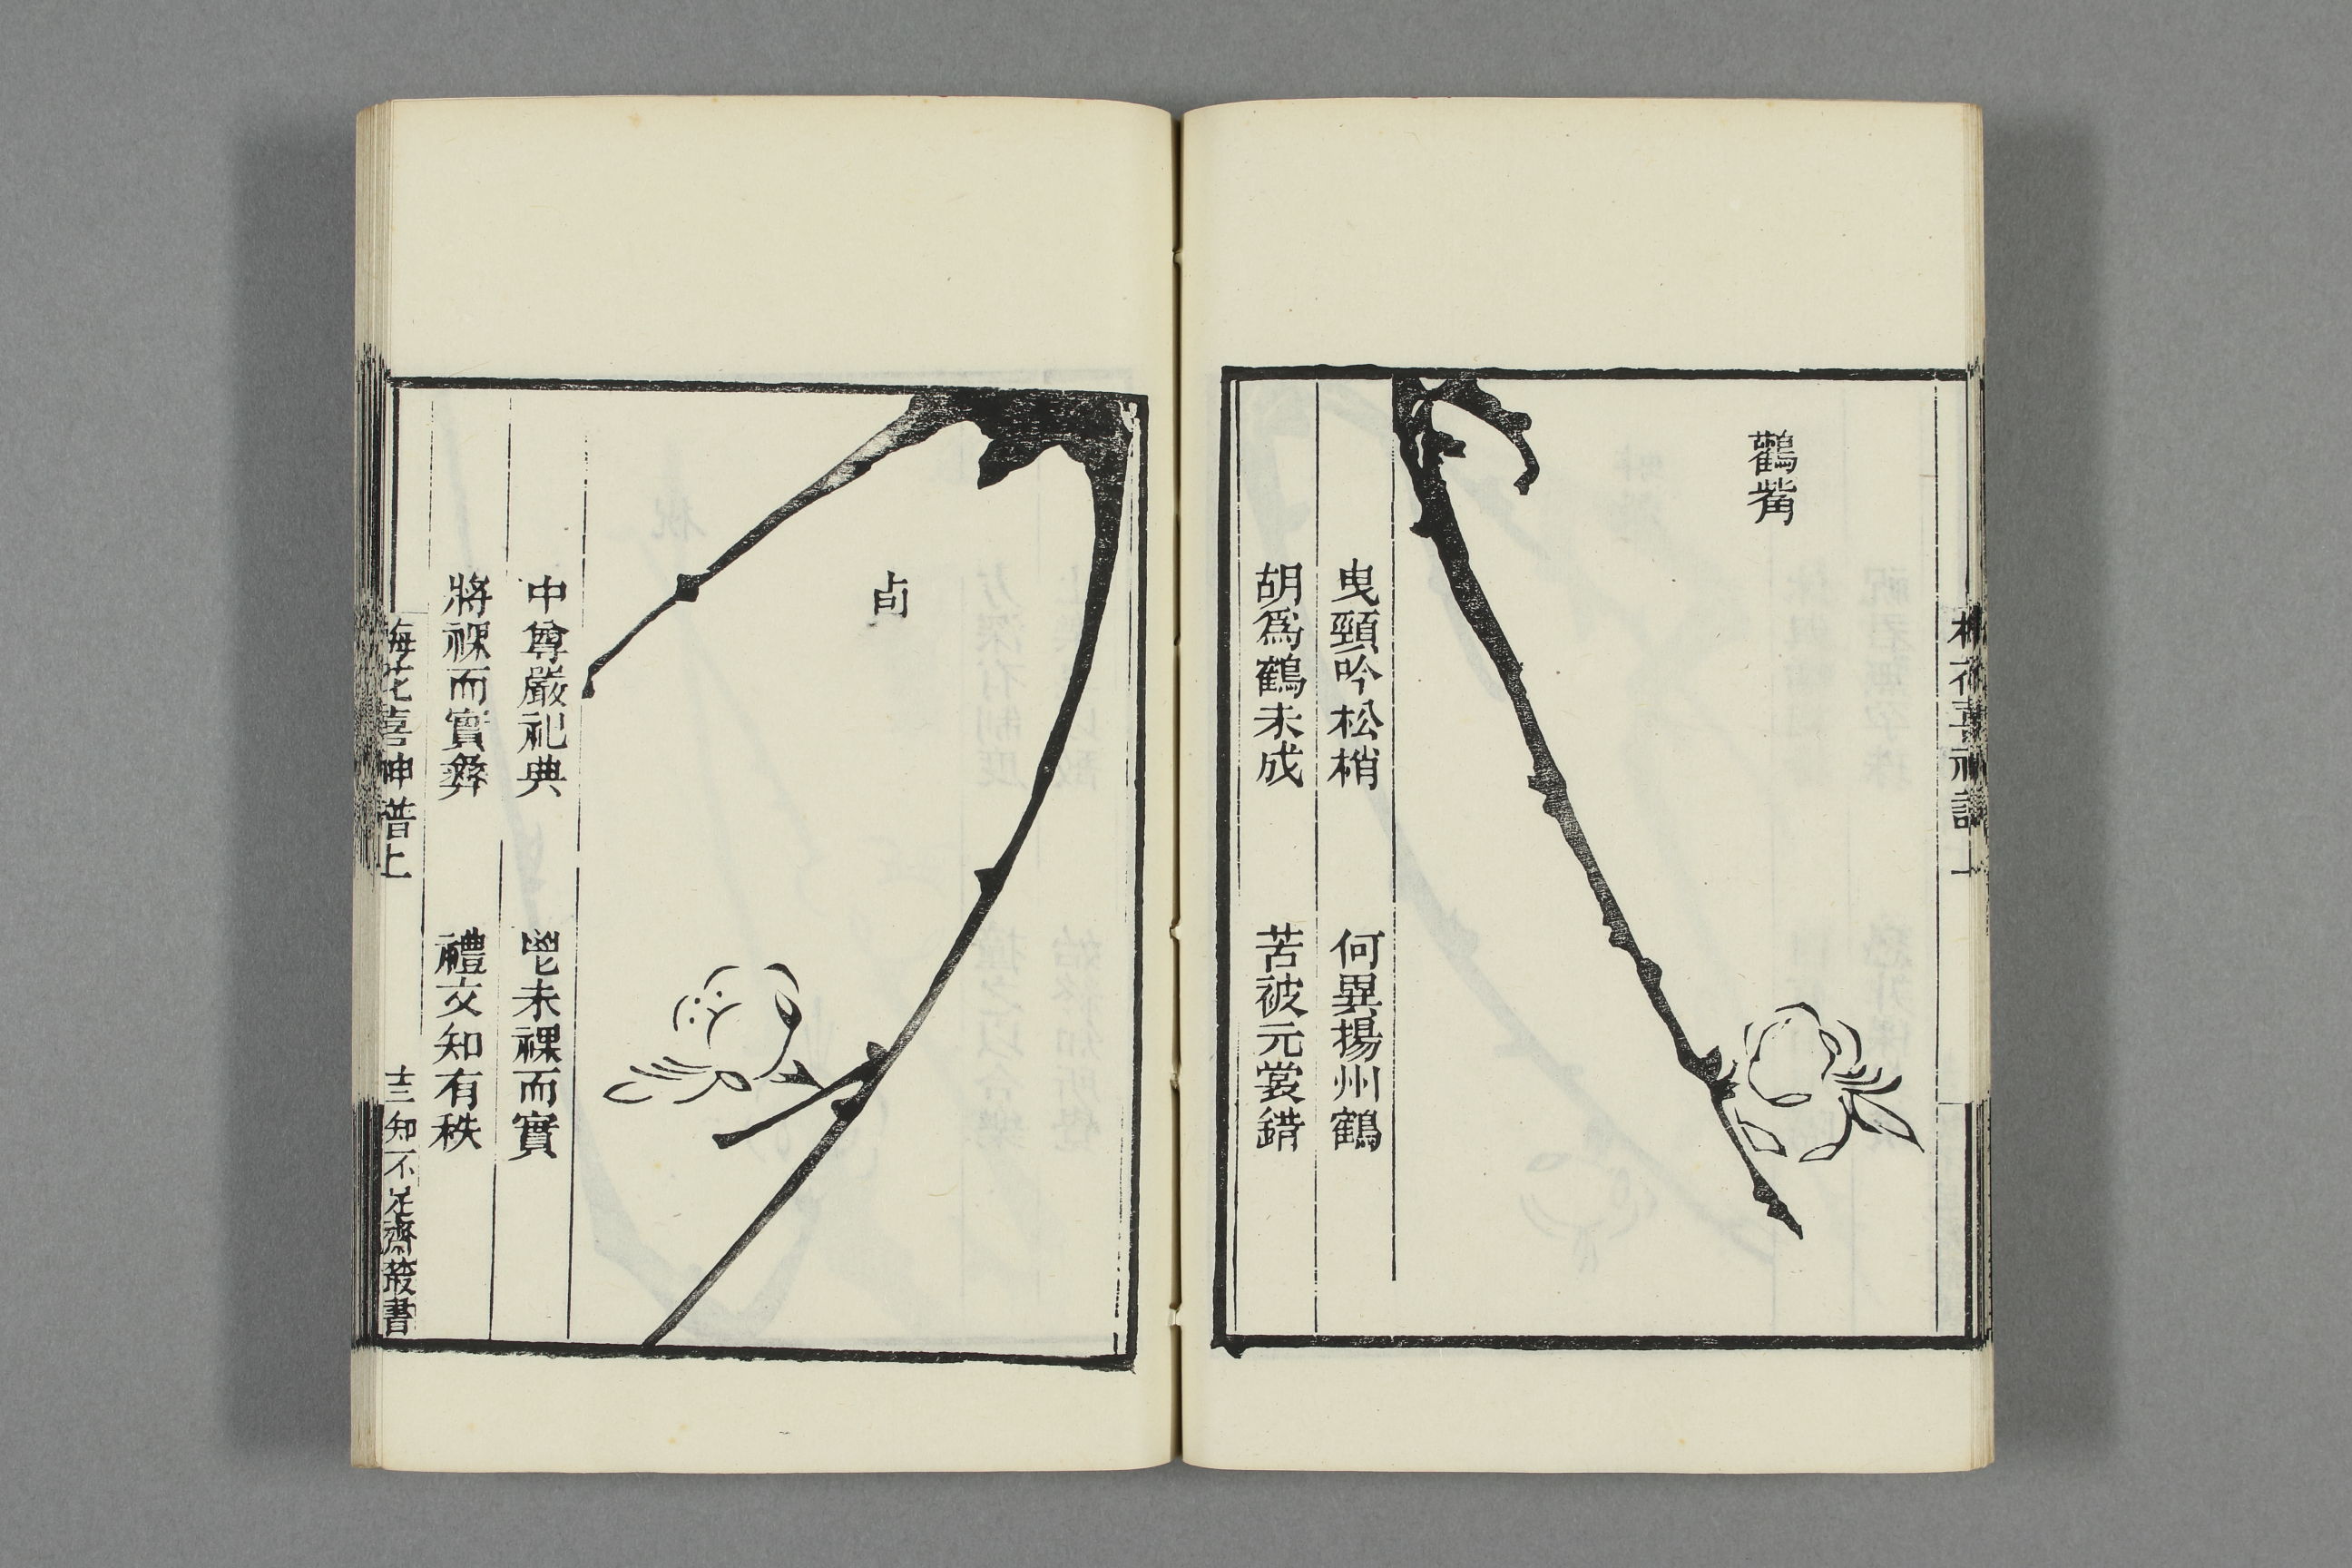 梅花喜神譜上
鸛觜
曳頸吟松梢　何異揚州鶴
胡爲鶴未成　苦被元裳錯
卣
中尊嚴祀典　鬯未祼而實
將祼而實彝　禮文知有秩
梅花喜神譜上　十三　知不足齋叢書